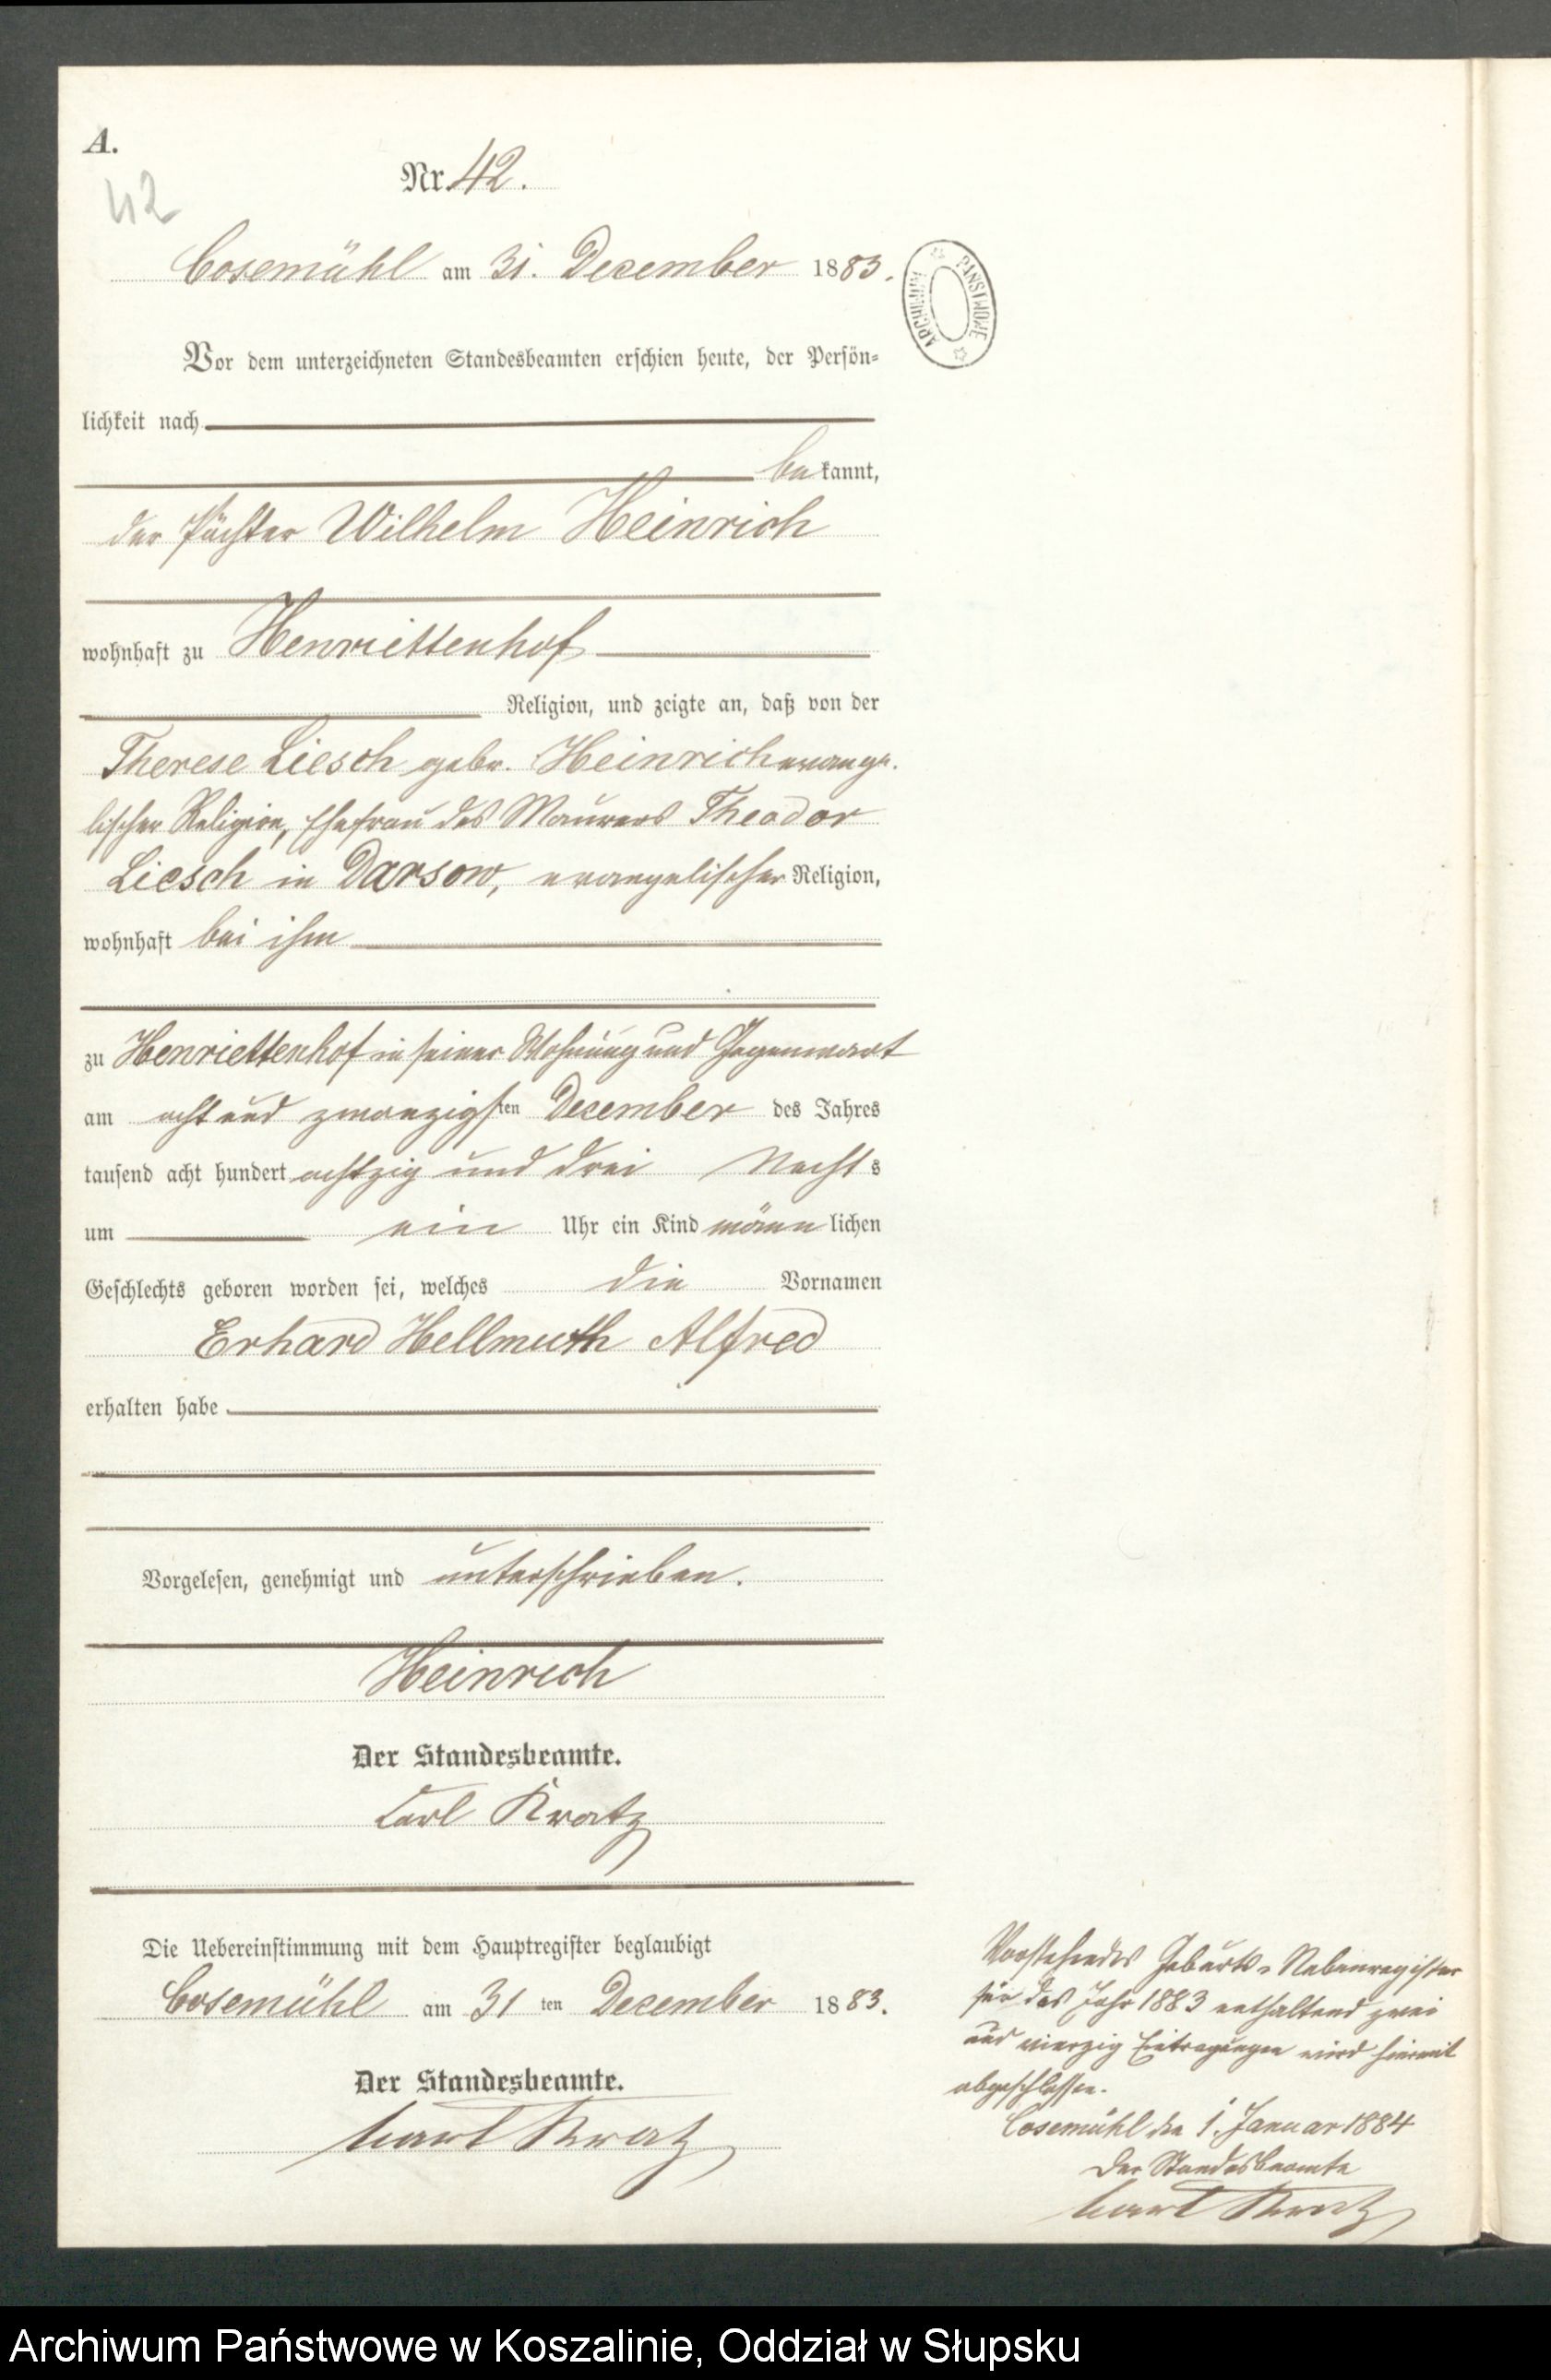 A.
42
Nr. 42.
Cosemühl am 31. December 1883.
ARCHIWUM PAŃSTWOWE
Vor dem unterzeichneten Standesbeamten erschien heute, der Persön-
lichkeit nach
bekannt,
der Pächter Wilhelm Heinrich
wohnhaft zu Henriettenhof
Religion, und zeigte an, daß von der
Therese Liesch gebr. Heinrich evange-
lischer Religion, Ehefrau des Maurers Theodor
Liesch in Darsow, evangelischer Religion,
wohnhaft bei ihm
zu Henriettenhof in seiner Wohnung und Gegenwart
am acht und zwanzigsten December des Jahres
tausend acht hundert achtzig und drei Nachts
um ein Uhr ein Kind männlichen
Geschlechts geboren worden sei, welches die Vornamen
Erhard Hellmuth Alfred
erhalten habe
Vorgelesen, genehmigt und unterschrieben.
Heinrich
Der Standesbeamte.
Carl Kratz
Die Uebereinstimmung mit dem Hauptregister beglaubigt
Cosemühl am 31ten December 1883.
Der Standesbeamte.
Carl Kratz
Vorstehendes Geburts-Nebenregister
für das Jahr 1883 enthaltend zwei
und vierzig Eintragungen wird hiermit
abgeschlossen.
Cosemühl den 1. Januar 1884
Der Standesbeamte
Carl Kratz
Archiwum Państwowe w Koszalinie, Oddział w Słupsku